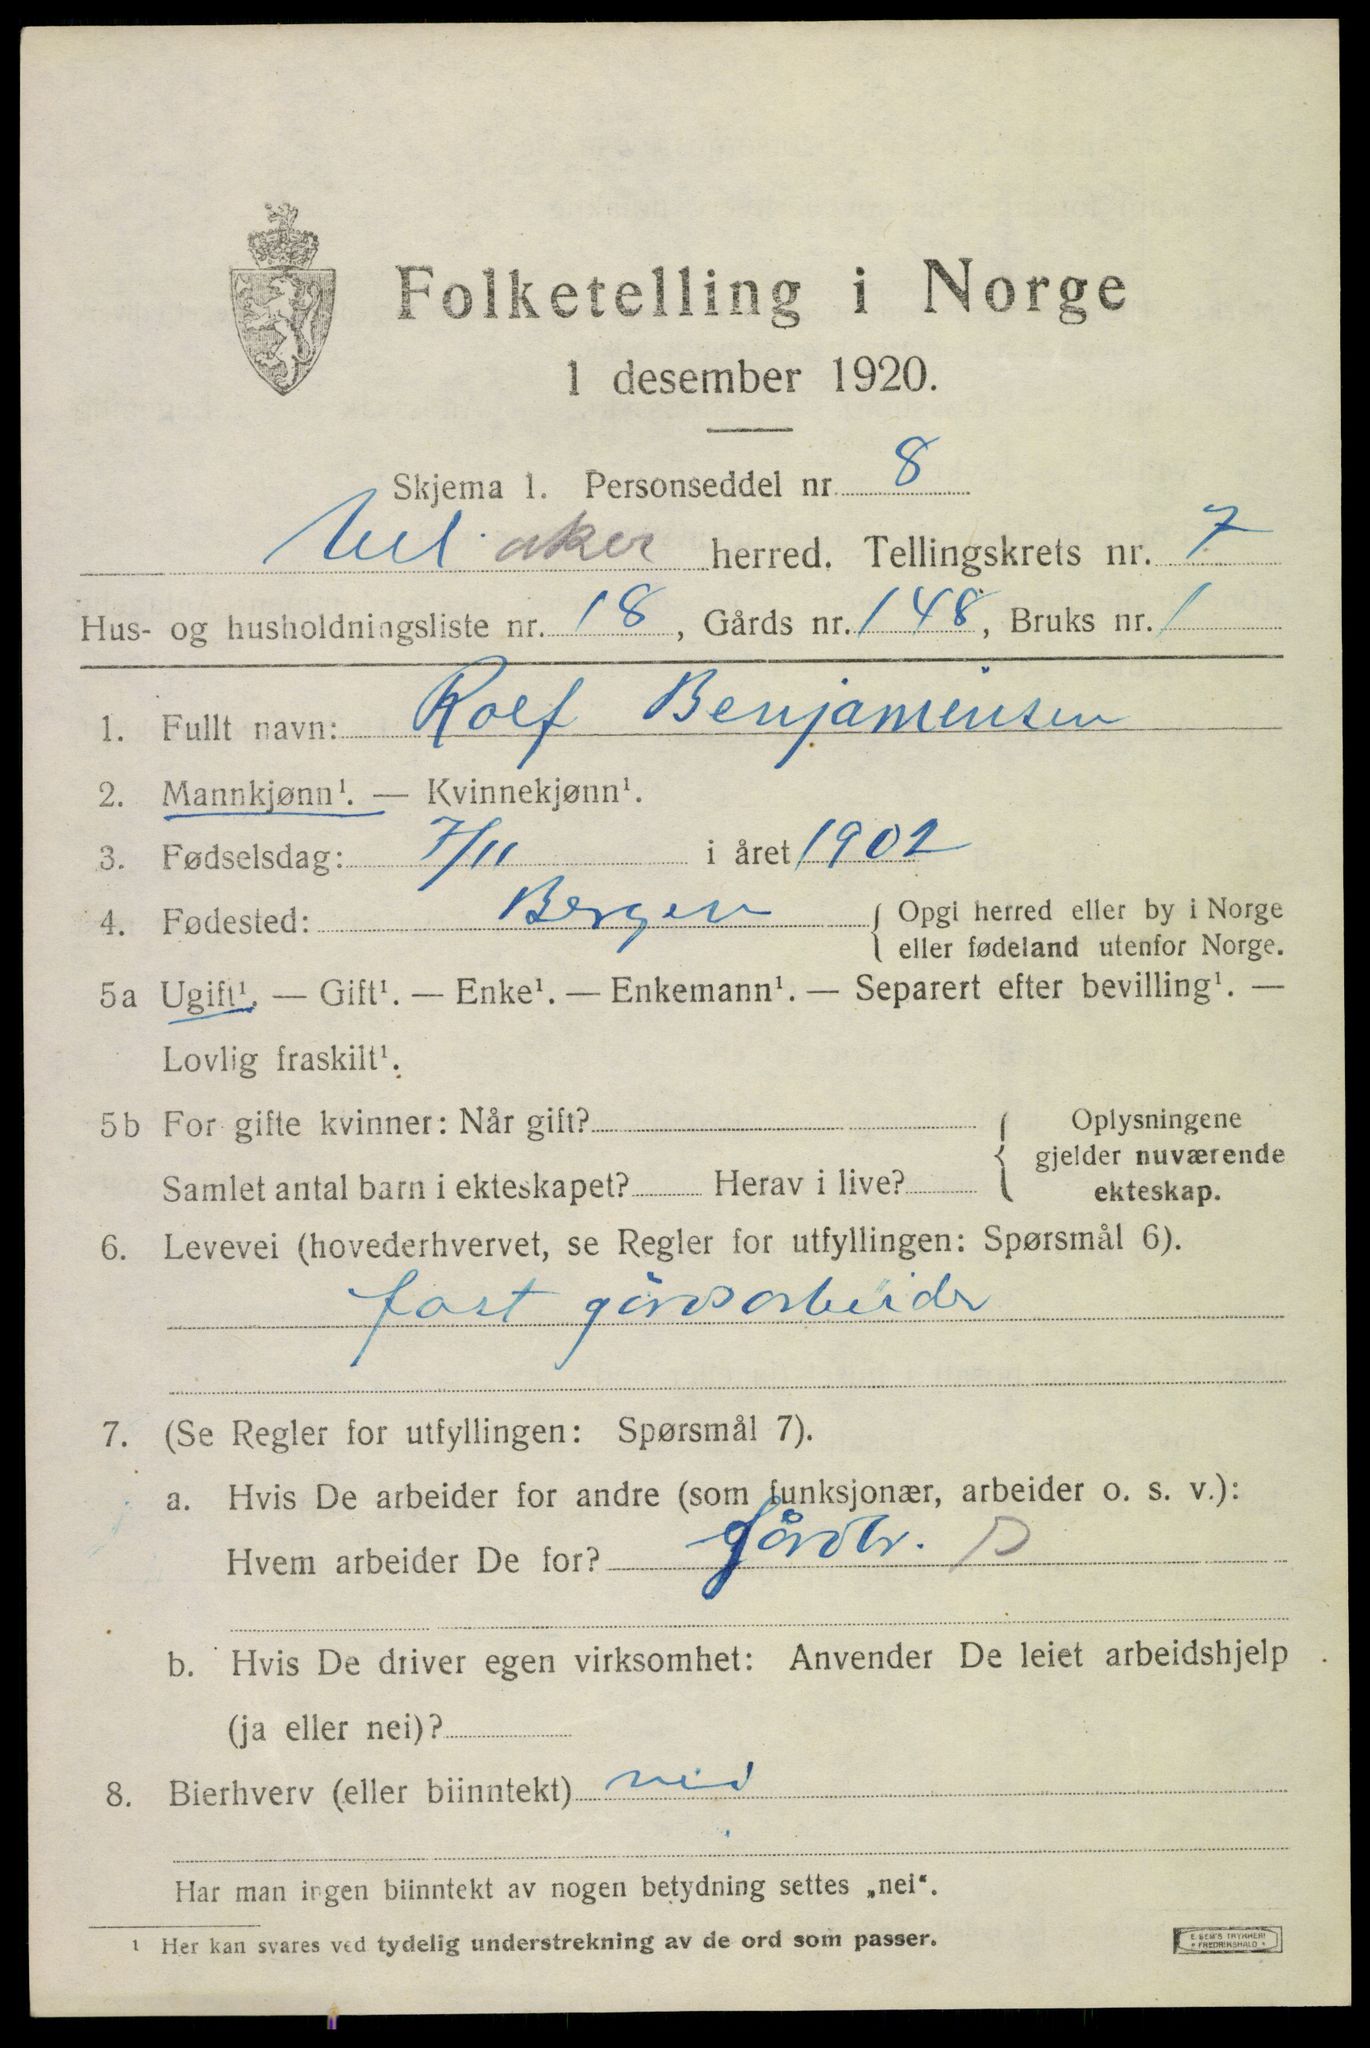 Folketelling i Norge
1 desember 1920.
Skjema 1. Personseddel nr. 8
Ull.aker herred. Tellingskrets nr. 7
Hus- og husholdningsliste nr. 18, Gårds nr. 148, Bruks nr. 1
1. Fullt navn: Rolf Benjaminsen
2. Mannkjønn¹. — Kvinnekjønn¹.
3. Fødselsdag: 7/11 i året 1902
4. Fødested: Bergen { Opgi herred eller by i Norge
eller fødeland utenfor Norge.
5a Ugift¹. — Gift¹. — Enke¹. — Enkemann¹. — Separert efter bevilling¹. —
Lovlig fraskilt¹.
5b For gifte kvinner: Når gift?
Samlet antal barn i ekteskapet? Herav i live?
{ Oplysningene
gjelder nuværende
ekteskap.
6. Levevei (hovederhvervet, se Regler for utfyllingen: Spørsmål 6).
fast gårdsarbeider
7. (Se Regler for utfyllingen: Spørsmål 7).
a. Hvis De arbeider for andre (som funksjonær, arbeider o. s. v.):
Hvem arbeider De for? Gårdbr. D
b. Hvis De driver egen virksomhet: Anvender De leiet arbeidshjelp
(ja eller nei)?
8. Bierhverv (eller biinntekt) nei
Har man ingen biinntekt av nogen betydning settes „nei“.
¹ Her kan svares ved tydelig understrekning av de ord som passer.
E. SEM'S TRYKKERI
* FREDRIKSHALD *